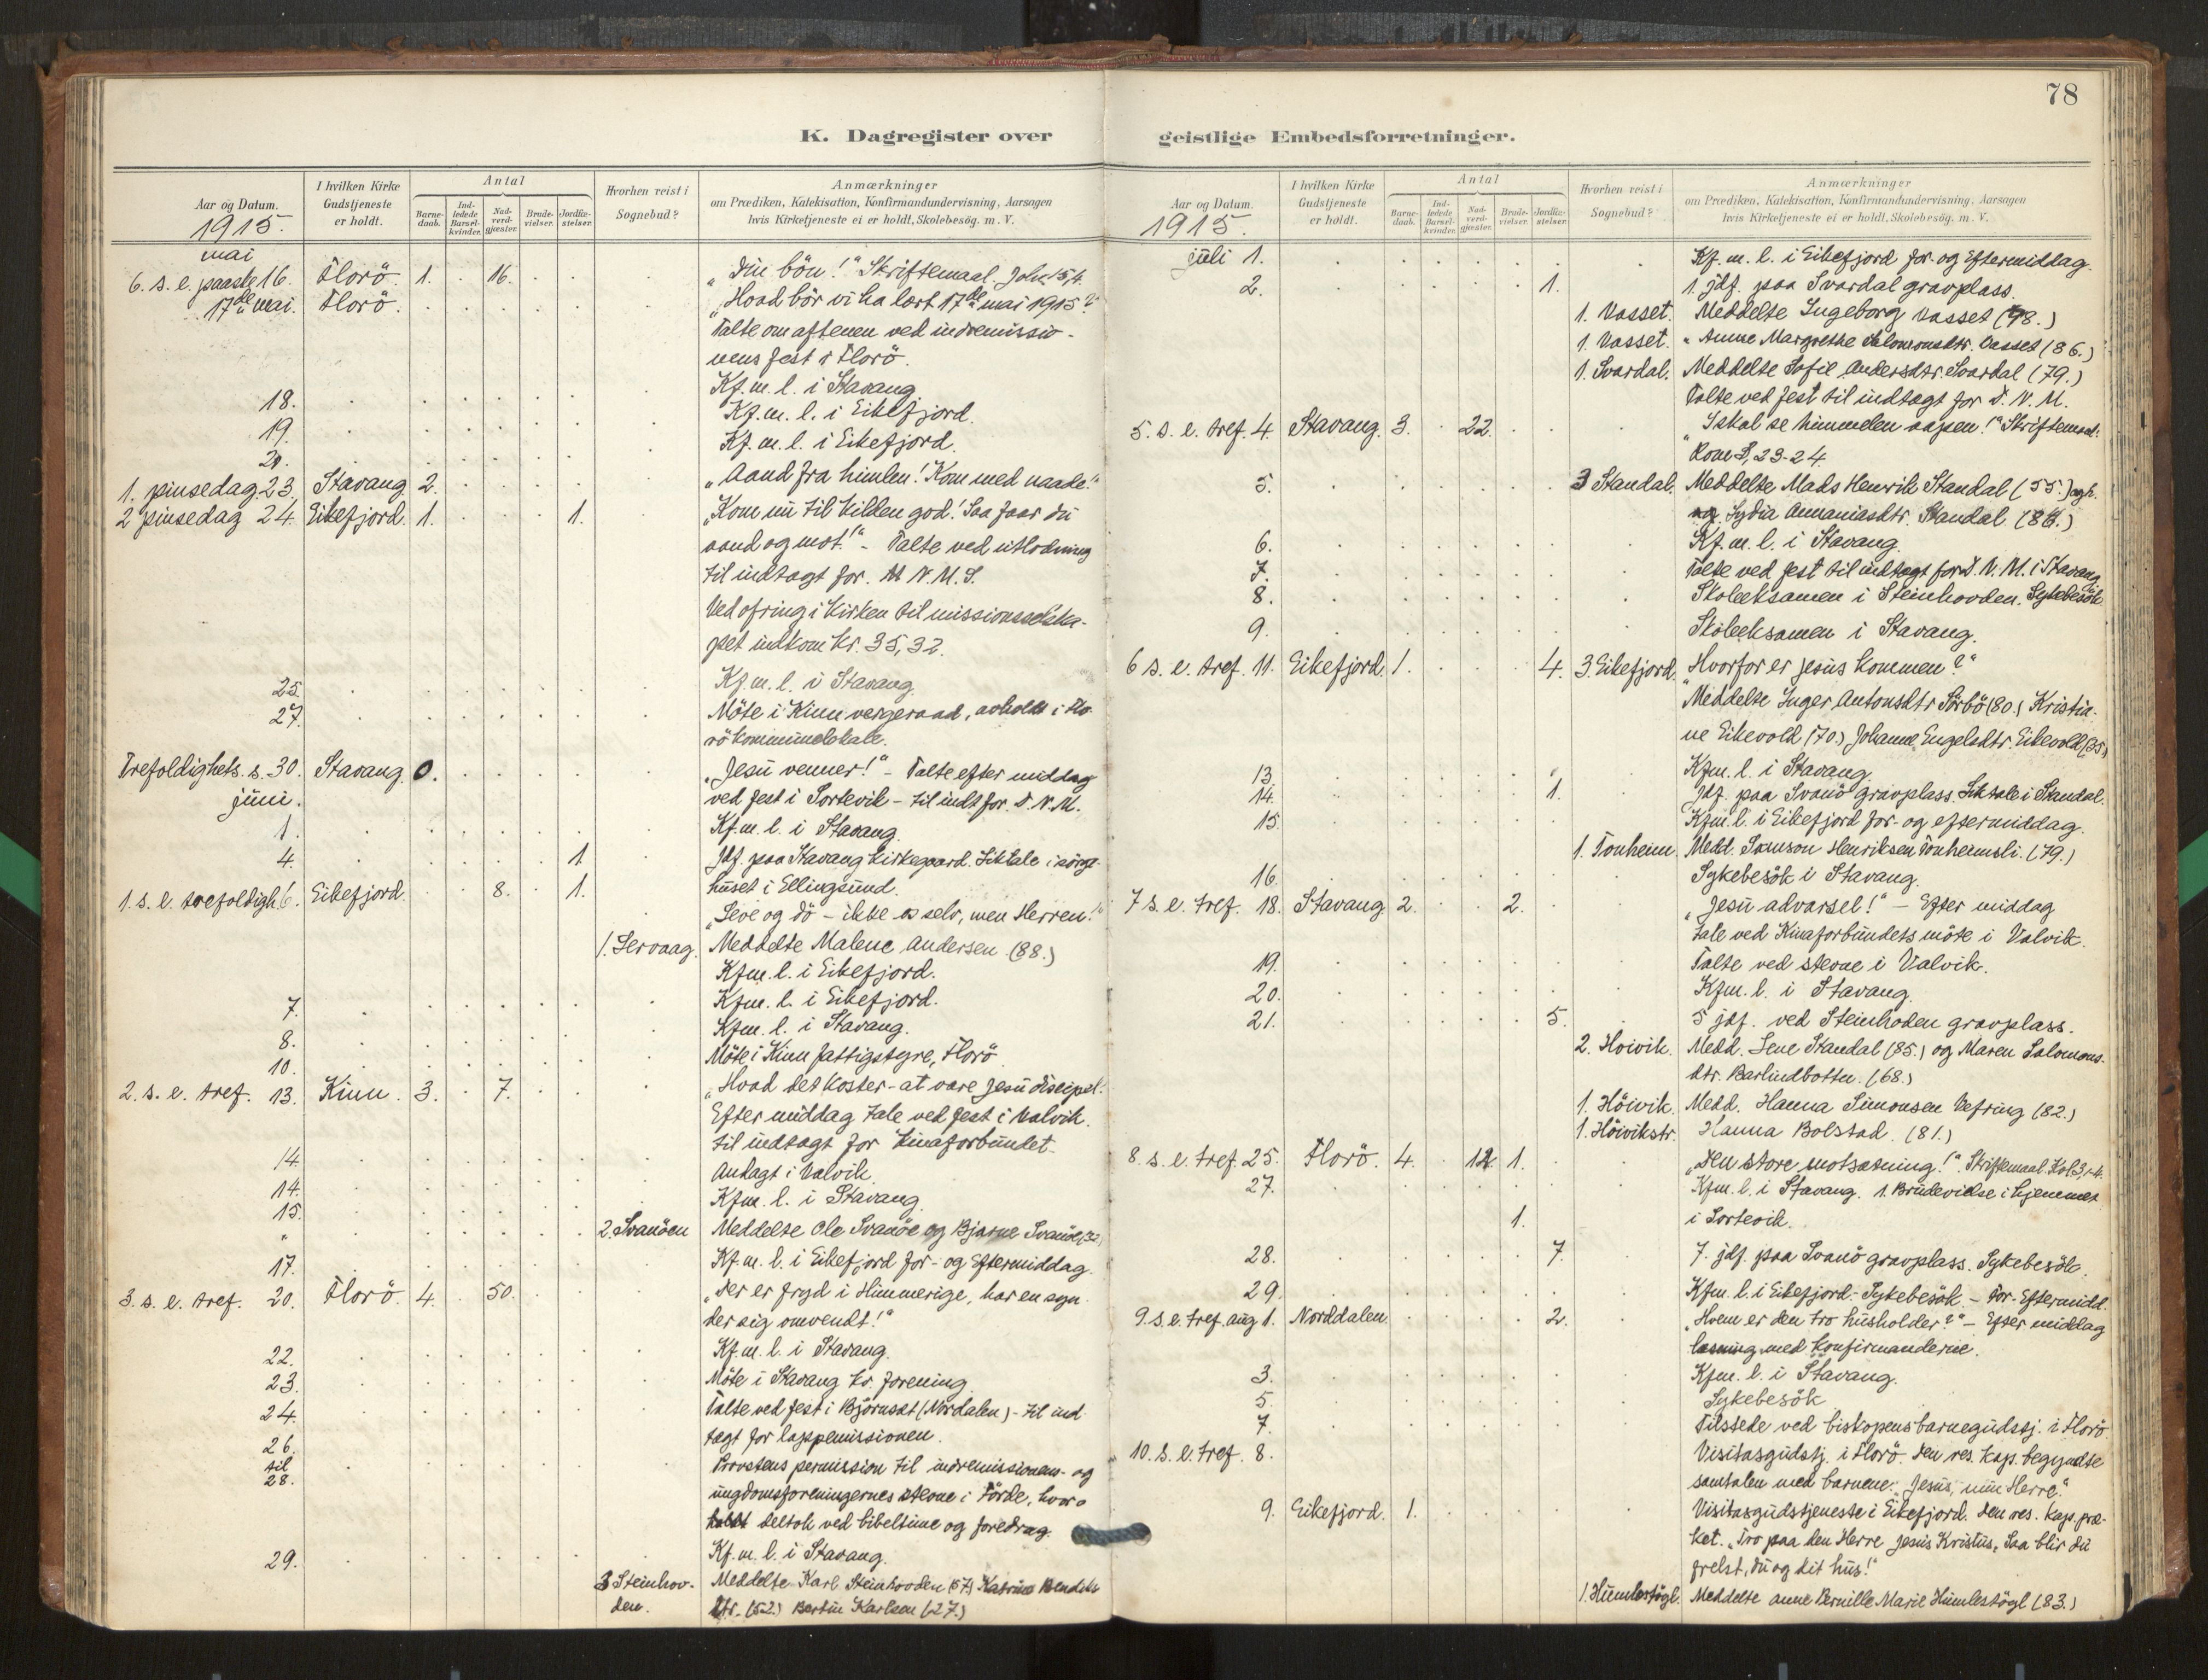 78
K. Dagregister over geistlige Embedsforretninger.
Aar og Datum. I hvilken Kirke Gudstjeneste er holdt. Antal Barnedaab. Indledede Barselkvinder. Nadverdgjæster. Brudevielser. Jordfæstelser. Hvorhen reist i Sognebud? Anmærkninger om Prædiken, Katekisation, Konfirmandundervisning, Aarsagen hvis Kirketjeneste ei er holdt, Skolebesög. m. V.
1915.
mai
6. s. e. paaske 16. Florö. 1. 16. „Din bön!“ Skriftemaal. Joh. 15,4.
17de mai. Florö. „Hvad bör vi ha lært 17de mai 1915?“
Talte om aftenen ved indremissio-
nens fest i Florö.
Kf. m. l. i Stavang
18. Kf. m. l. i Eikefjord.
19. Kf. m. l. i Eikefjord.
20.
1. pinsedag 23. Stavang 2. „Aand fra himlen! Kom med naade!“
2 pinsedag 24. Eikefjord. 1. 1. „Kom nu til kilden god! Saa faar du
aand og mot!“ - Talte ved utlodning
til indtægt for N. M. S.
Ved ofring i kirken til missionsselska-
pet indkom kr. 35,32.
25. Kf. m. l. i Stavang.
27. Möte i Kinn vergeraad, avholdt i Flo-
rö kommunelokale.
Trefoldighets. s. 30. Stavang. 0. „Jesu venner!“ - Talte efter middag
juni. ved fest i Sortevik - til indt for D. N. M.
1. Kf. m. l. i Stavang.
4. 1 Jdf. paa Stavang kirkegaard. Liktale i sörge-
huset i Ellingsund.
1. s. e. trefoldigh 6. Eikefjord. 8. 1. „Leve og dö - ikke os selv, men Herren!“
1. Servaag. Meddelte Malene Andersen. (88.)
Kfm. l. i Eikefjord.
7. Kfm. l. i Eikefjord.
8. Kfm. l. i Stavang.
10. Möte i Kinn fattigstyre, Florö
2. s. e. tref. 13. Kinn. 3. 7. „Hvad det koster - at være Jesu discipel.“
Efter middag tale ved fest i Valvik.
til indtægt for Kinaforbundet.
14. Andagt i Valvik.
14. Kfm. l. i Stavang.
15. 2. Svanöen Meddelte Ole Svanöe og Bjarne Svanöe
17. Kf. m. l. i Eikefjord for- og Eftermiddag.
3. s. e. tref. 20. Florö. 4. 50. „Der er fryd i Himmerige, har en syn-
der sig omvendt!“
22. Kf. m. l. i Stavang.
23. Möte i Stavang kr. forening
24. Talte ved fest i Björnset (Nordalen) - til ind-
tægt for lappemissionen.
26. til 28. Provstens permission til indremissionens- og
ungdomsforeningernes stevne i Förde, hvor
deltok ved bibeltime og foredrag.
29. Kf. m. l. i Stavang.
3 Steinhov-den. Meddelte Karl Steinhovden (57) Katrine Bendiks
dtr. (52.) Bertin Karlsen (27.)
Aar og Datum. I hvilken Kirke Gudstjeneste er holdt. Antal Barnedaab. Indledede Barselkvinder. Nadverdgjæster. Brudevielser. Jordfæstelser. Hvorhen reist i Sognebud? Anmærkninger om Prædiken, Katekisation, Konfirmandundervisning, Aarsagen hvis Kirketjeneste ei er holdt, Skolebesög. m. V.
1915.
juli 1. Kf. m. l. i Eikefjord for- og Eftermiddag.
2. 1. 1. jdf. paa Svardal gravplass.
1. Vasset. Meddelte Ingeborg Vasset (98.)
1. Vasset. „ Anne Margrethe Salomonsdtr. Vasset (86.)
1. Svardal. Meddelte Sofie Andersdtr. Svardal (79.)
Talte ved fest til indtægt for D. N. M.
5. s. e. tref. 4. Stavang. 3. 22. „I skal se himmelen aapen!“ Skriftemaal:
Rom 3, 23-24.
5. 3 Standal. Meddelte Mads Henrik Standal (55.) og h.
og Lydia Annaniasdtr. Standal
6. Kf. m. l. i Stavang.
7. Talte ved fest til indtægt for D. N. M. i Stavang
8. Skoleeksamen i Steinhovden. Sykebesök
9. Skoleeksamen i Stavang.
6 s. e. tref. 11. Eikefjord. 1. 4. 3. Eikefjord. „Hvorfor er Jesus kommen?“
Meddelte Inger Antonsdtr Sörbö (80.) Kristia-
ne Eikevold (70.) Johanne Engelsdtr. Eikevold
13. Kfm. l. i Stavang.
14. 1. Jdf. paa Svanö gravplass. Liktale i Standal.
15. Kfm. l. i Eikefjord for- og eftermiddag.
1. Tonheim. Medd. Samson Henriksen Tonheimsli. (79.)
16. Sykebesök i Stavang.
7 s. e. tref. 18. Stavang. 2. 2. „Jesu advarsel!“ - Efter middag
tale ved Kinaforbundets möte i Valvik.
19. Talte ved stevne i Valvik.
20. Kfm. l. i Stavang.
21. 5. 5 jdf. ved Steinhoden gravplass.
2. Hoivik. Medd. Lene Standal (85.) og Maren Salomons-
dtr. Barlindbotten. (68.)
1. Höivik. Medd. Hanna Simonsen Vefring (82.)
1. Höivikstr. Hanna Bolstad. (81.)
8. s. e. tref. 25. Florö. 4. 12. 1. „Den store motsætning!“ Skriftemaal. Kol 3,1-4.
27. Kfm. l. i Stavang. 1. Brudevielse i hjemmet
1. i Sortevik.
28. 7. 7. jdf. paa Svanö gravplass. Sykebesök.
29. Kfm. l. i Eikefjord - Sykebesök - For-Eftermidd.
9. s. e. tref. aug 1. Norddalen. 2. „Hvem er den tro husholder?“ - Efter middag
læsning med konfirmanderne.
3. Kfm. l. i Stavang.
5. Sykebesök
7. Tilstede ved biskopens barnegudstj. i Florö
10. s. e. tref. 8. Visitasgudstj. i Florö. Den res. kap. begyndte
samtalen med barnene: „Jesus, min Herre.“
9. Eikefjord. 1. Visitasgudstjeneste i Eikefjord. Den res. kap. præ-
ket. „Tro paa den Herre Jesus Kristus, saa blir du
frelst, du og dit hus!“
1. Humlestögl. Meddelte Anne Pernille Marie Humlestögl (83.)